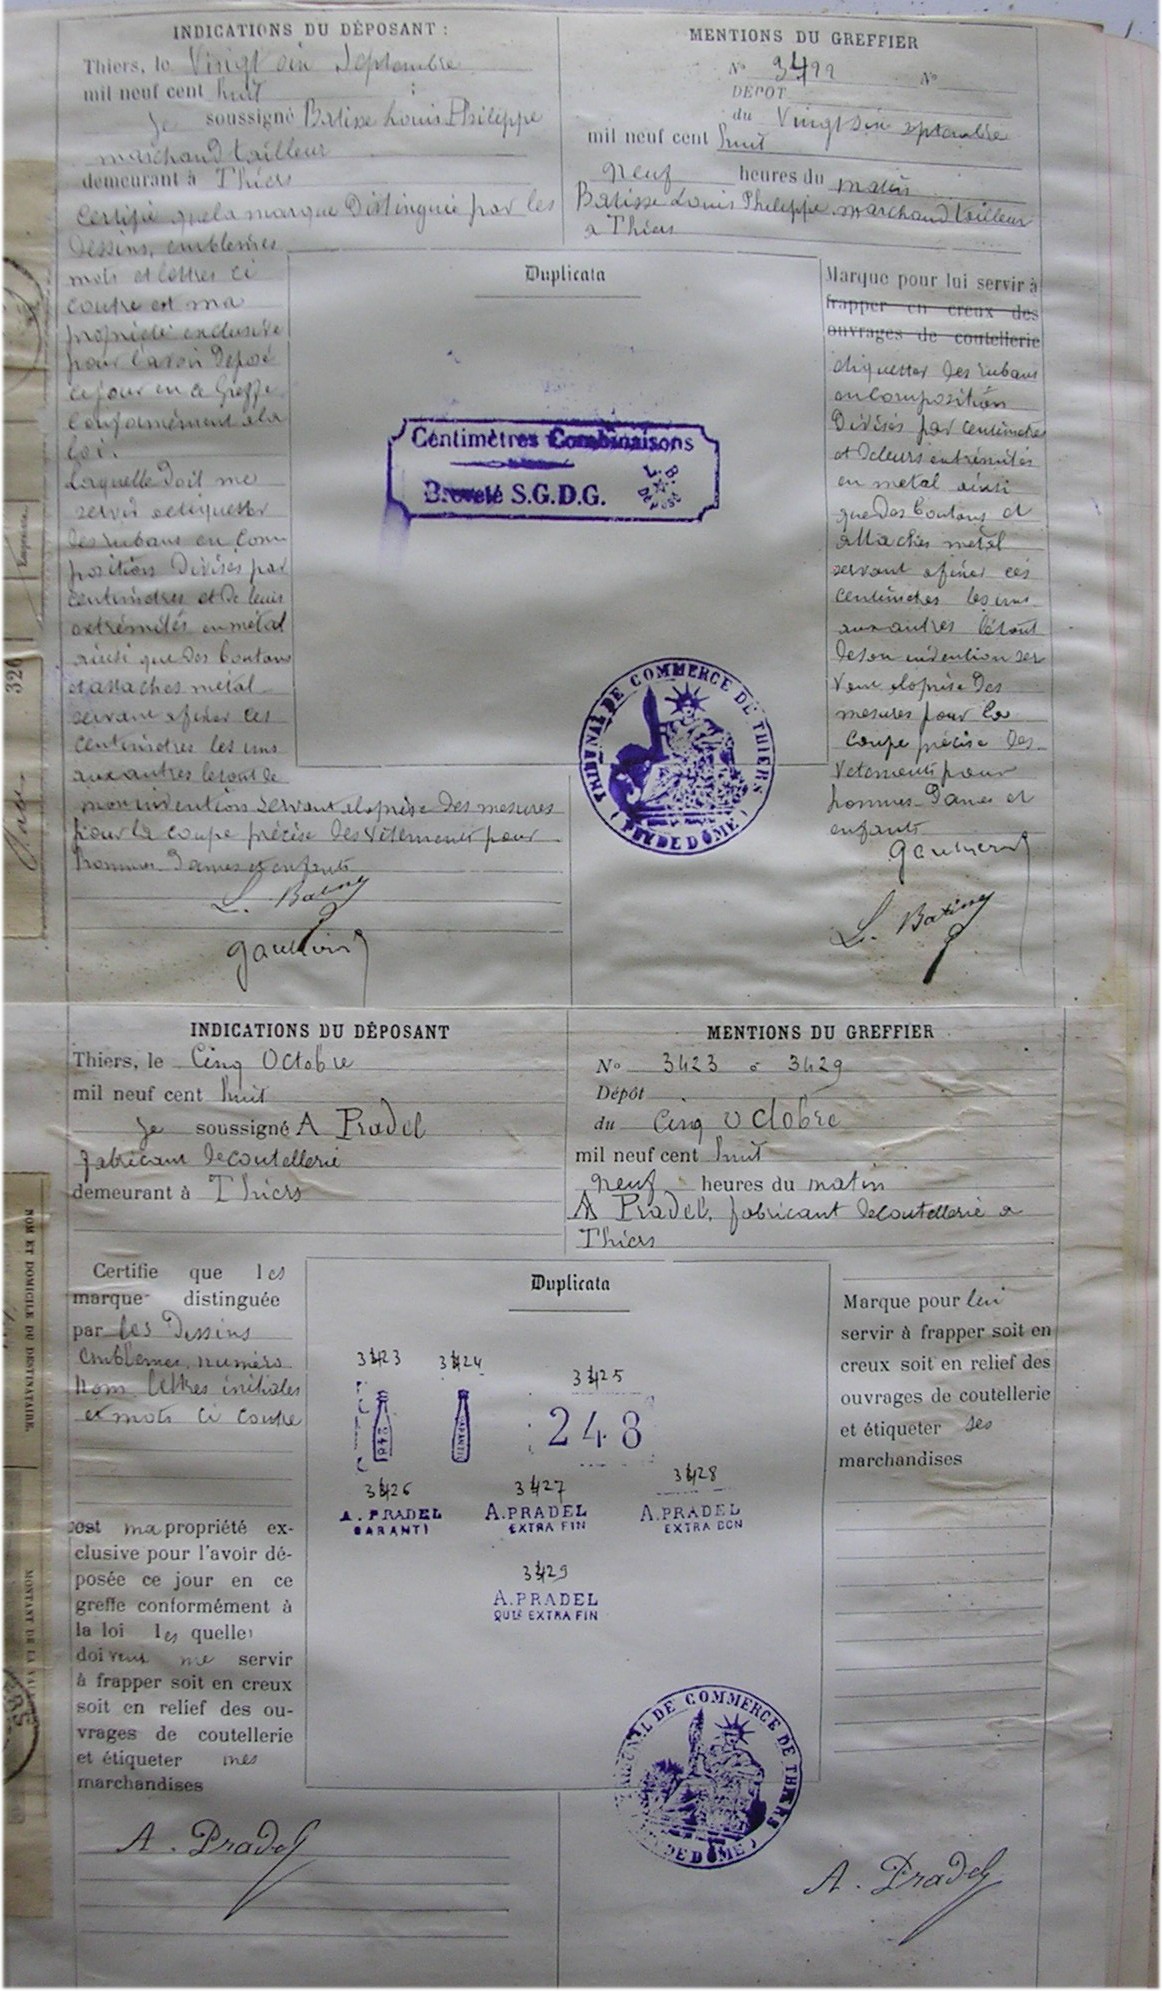 INDICATIONS DU DÉPOSANT :
Thiers, le Vingt six Septembre
mil neuf cent huit
Je soussigné Batisse Louis Philippe
marchand tailleur
demeurant à Thiers
Certifie que la marque Distinguée par les
dessins, emblemes
mots et lettres ci
contre est ma
propriété exclusive
pour l'avoir Déposé
ce jour en ce Greffe
Conformément a la
loi.
Laquelle doit me
servir a etiquetter
des rubans en Com
position Divisés par
centimètres et De leurs
extrémités en métal
ainsi que Des boutons
et attaches métal
servant a fixer ces
centimètres les uns
aux autres le tout de
mon invention servant a la prise Des mesures
pour la coupe précise des vêtements pour
hommes Dames et enfants
L. Batisse
MENTIONS DU GREFFIER
N° 3422 N°
DÉPOT
du Vingt six septembre
mil neuf cent huit
neuf heures du matin
Batisse Louis Philippe marchand tailleur
a Thiers
Duplicata
Centimètres Combinaisons
Breveté S.G.D.G.
L. B.
Déposé
Marque pour lui servir à
frapper en creux des
ouvrages de coutellerie
étiquetter des rubans
en composition
Divisés par centimètres
et De leurs extrémités
en métal ainsi
que Des boutons et
attaches métal
servant a fixer ces
centimetres les uns
aux autres le tout
de son invention ser
vant a la prise Des
mesures pour la
coupe précise des
Vetements pour
hommes Dames et
enfants
L. Batisse
TRIBUNAL DE COMMERCE DE THIERS
(PUY DE DÔME)
INDICATIONS DU DÉPOSANT
Thiers, le Cinq Octobre
mil neuf cent huit
Je soussigné A Pradel
fabricant de coutellerie
demeurant à Thiers
MENTIONS DU GREFFIER
N° 3423 a 3429
Dépôt
du Cinq Octobre
mil neuf cent huit
neuf heures du matin
A Pradel, fabricant de coutellerie a
Thiers
Certifie que les
marque distinguée
par les Dessins
emblemes, numéro
Nom lettres initiales
et mots ci contre
est ma propriété ex-
clusive pour l'avoir dé-
posée ce jour en ce
greffe conformément à
la loi les quelles
doivent me servir
à frapper soit en creux
soit en relief des ou-
vrages de coutellerie
et étiqueter mes
marchandises
A. Pradel
Duplicata
3423 3424 3425
248
3426 3427 3428
A. PRADEL
GARANTI
A. PRADEL
EXTRA FIN
A. PRADEL
EXTRA BON
3429
A. PRADEL
QUté EXTRA FIN
Marque pour lui
servir à frapper soit en
creux soit en relief des
ouvrages de coutellerie
et étiqueter ses
marchandises
TRIBUNAL DE COMMERCE DE THIERS
(PUY DE DÔME)
A. Pradel
326
NOM ET DOMICILE DU DESTINATAIRE.